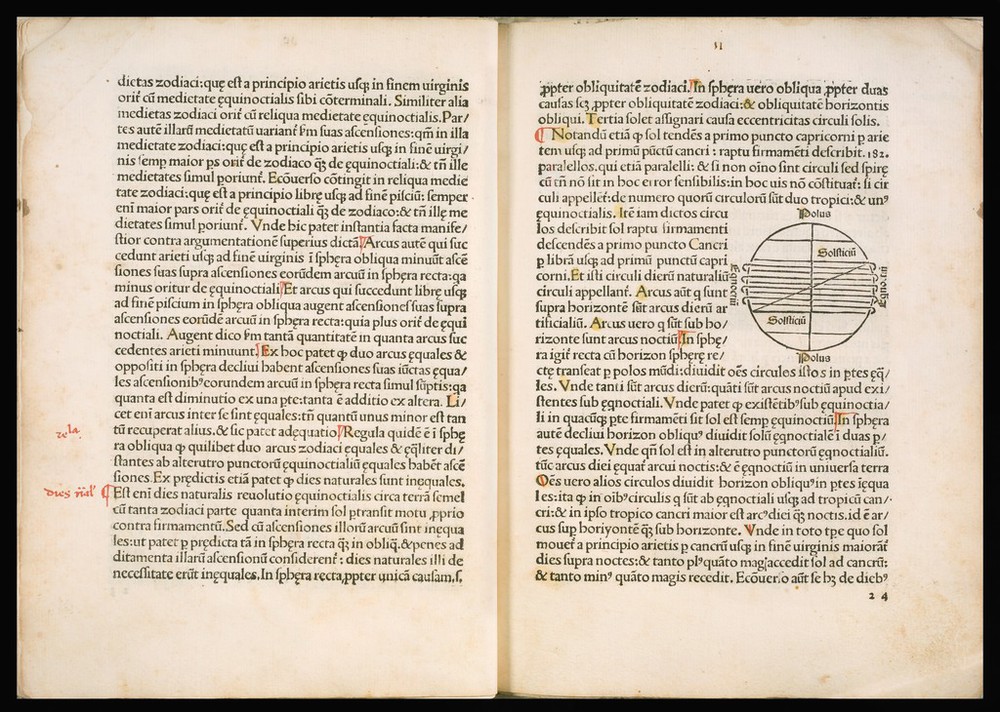 dictas zodiaci:quę est a principio arietis usq; in finem uirginis
orit̃ cũ medietate ęquinoctialis sibi cõterminali. Similiter alia
medietas zodiaci orit̃ cũ reliqua medietate ęquinoctialis. Par/
tes autē illarũ medietatũ uariant̃ ſm suas ascensiones:qm̃ in illa
medietate zodiaci:quę est a principio arietis usq; in finē uirgi/
nis semp maior ps orit̃ de zodiaco q̃; de ęquinoctiali:& tñ ille
medietates simul poriunt̃. Ecõuerso cõtingit in reliqua medie
tate zodiaci:quę est a principio librę usq; ad finē pisciũ: semper
eni maior pars orit̃ de ęquinoctiali q̃; de zodiaco:& tñ illę me
dietates simul poriunt̃. Vnde hic patet instantia facta manife/
stior contra argumentationē superius dictã. Arcus autē qui suc
cedunt arieti usq; ad finē uirginis ĩ sphęra obliqua minuũt ascē
siones suas supra ascensiones eorũdem arcuũ in sphęra recta:qa
minus oritur de ęquinoctiali. Et arcus qui succedunt librę usq;
ad finē piscium in sphęra obliqua augent ascensiones suas supra
ascensiones eorũdē arcuũ in sphęra recta:quia plus orit̃ de ęqui
noctiali. Augent dico ſm tantã quantitatē in quanta arcus suc
cedentes arieti minuunt. Ex hoc patet ꝙ duo arcus ęquales &
oppositi in sphęra decliui habent ascensiones suas iũctas ęqua/
les ascensionibꝰ eorundem arcuũ in sphęra recta simul sũptis:qa
quanta est diminutio ex una pte:tanta ē additio ex altera. Li/
cet eni arcus inter se sint ęquales:tñ quantũ unus minor est tan
tũ recuperat alius.& sic patet adęquatio. Regula quidē ē ĩ sphę
ra obliqua ꝙ quilibet duo arcus zodiaci ęquales & ęq̃liter di/
stantes ab alterutro punctorũ ęquinoctialiũ ęquales habēt ascē
siones. Ex prędictis etiã patet ꝙ dies naturales sunt inęquales.
dies nãl̃
Est eni dies naturalis reuolutio ęquinoctialis circa terrã semel
cũ tanta zodiaci parte quanta interim sol ptransit motu ꝓprio
contra firmamentũ. Sed cũ ascensiones illorũ arcuũ sint inęqua
les:ut patet p prędicta tã in sphęra recta q̃; in obliq̃.& penes ad
ditamenta illarũ ascensionũ considerent̃: dies naturales illi de
necessitate erũt inęquales. In sphęra recta ꝓpter unicã causam.s.
ꝓpter obliquitatē zodiaci. In sphęra uero obliqua ꝓpter duas
causas scꝫ ꝓpter obliquitatē zodiaci:& obliquitatē horizontis
obliqui. Tertia solet assignari causa eccentricitas circuli solis.
Notandũ etiã ꝙ sol tendēs a primo puncto capricorni p arie
tem usq; ad primũ pũctũ cancri: raptu firmamēti describit .182.
parallelos. qui etiã paralelli: & si non oĩno sint circuli sed spirę
cũ tñ nõ sit in hoc error sensibilis: in hoc uis nõ cõstituat̃: si cir
culi appellet̃: de numero quorũ circulorũ sũt duo tropici:& unꝰ
ęquinoctialis. Itē iam dictos circu
los describit sol raptu firmamenti
descendēs a primo puncto Cancri
p librã usq; ad primũ punctũ capri
corni. Et isti circuli dierũ naturaliũ
circuli appellant̃. Arcus aũt q sunt
supra horizontē sũt arcus dierũ ar
tificialiũ. Arcus uero q sũt sub ho/
rizonte sunt arcus noctiũ. In sphę/
ra igit̃ recta cũ horizon sphęrę re/
Polus
Solsticiũ
Solsticiũ
Polus
ctę transeat p polos mũdi:diuidit oēs circulos istos in ptes ęq̃/
les. Vnde tanti sũt arcus dierũ:quãti sũt arcus noctiũ apud exi/
stentes sub ęqnoctiali. Vnde patet ꝙ existētibꝰ sub ęquinoctia/
li in quacũq; pte firmamēti sit sol est semp ęquinoctiũ. In sphęra
autē decliui horizon obliquꝰ diuidit solũ ęqnoctialē ĩ duas p/
tes ęquales. Vnde qñ sol est in alterutro punctorũ ęqnoctialiũ.
tũc arcus diei ęquat̃ arcui noctis:& ē ęqnoctiũ in uniuersa terra
Oēs uero alios circulos diuidit horizon obliquꝰ in ptes ięqua
les:ita ꝙ in oĩbꝰ circulis q sũt ab ęqnoctiali usq; ad tropicũ can/
cri:& in ipso tropico cancri maior est arcꝰ diei q̃; noctis. id ē ar/
cus sup horiyontē q̃; sub horizonte. Vnde in toto tpe quo sol
mouet̃ a principio arietis p cancrũ usq; in finē uirginis maiorãt̃
dies supra noctes:& tanto plꝰ quãto magis accedit sol ad cancrũ:
& tanto minꝰ quãto magis recedit. Ecõuerso aũt se hꝫ de diebꝰ
2 4